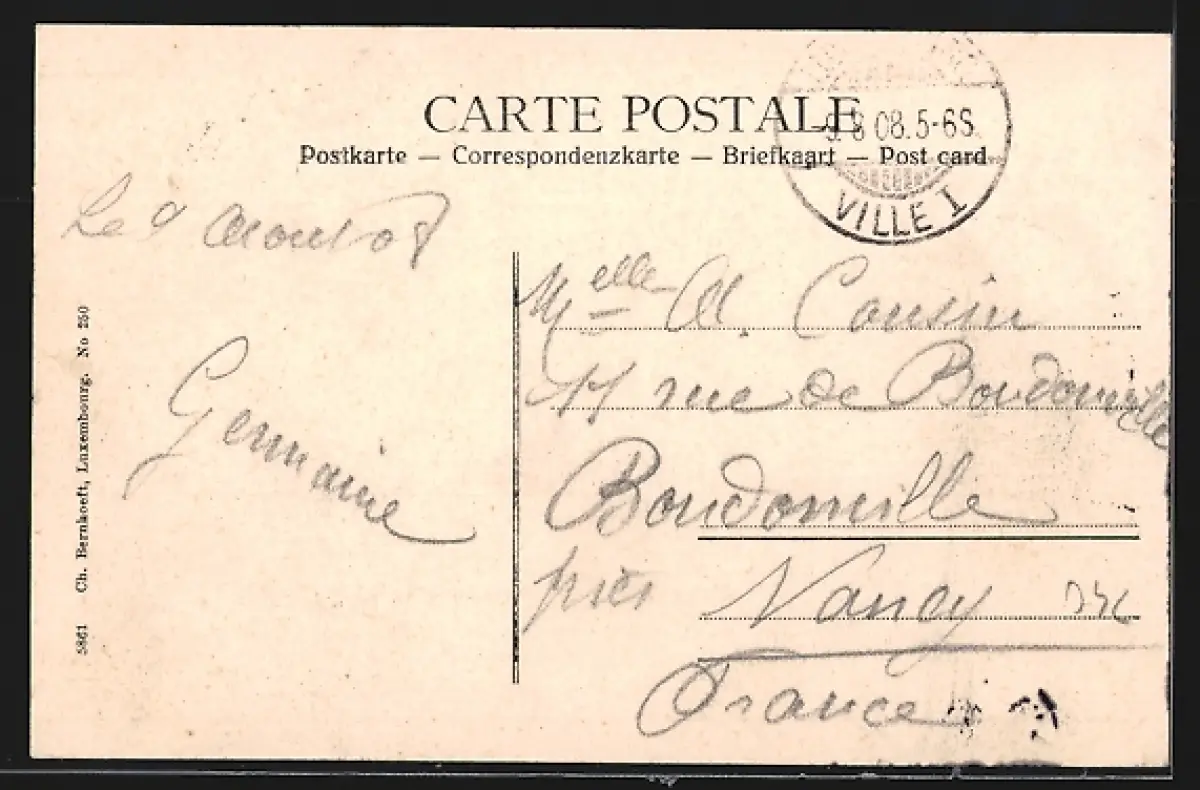 CARTE POSTALE
Postkarte — Correspondenzkarte — Briefkaart — Post card
9.8 08.5-6S
VILLE I
Le 9 Août 08
Germaine
Melle A. Cousin
rue de Boudonville
Boudonville
près Nancy
France
5861 Ch. Bernhoeft, Luxembourg. No 250